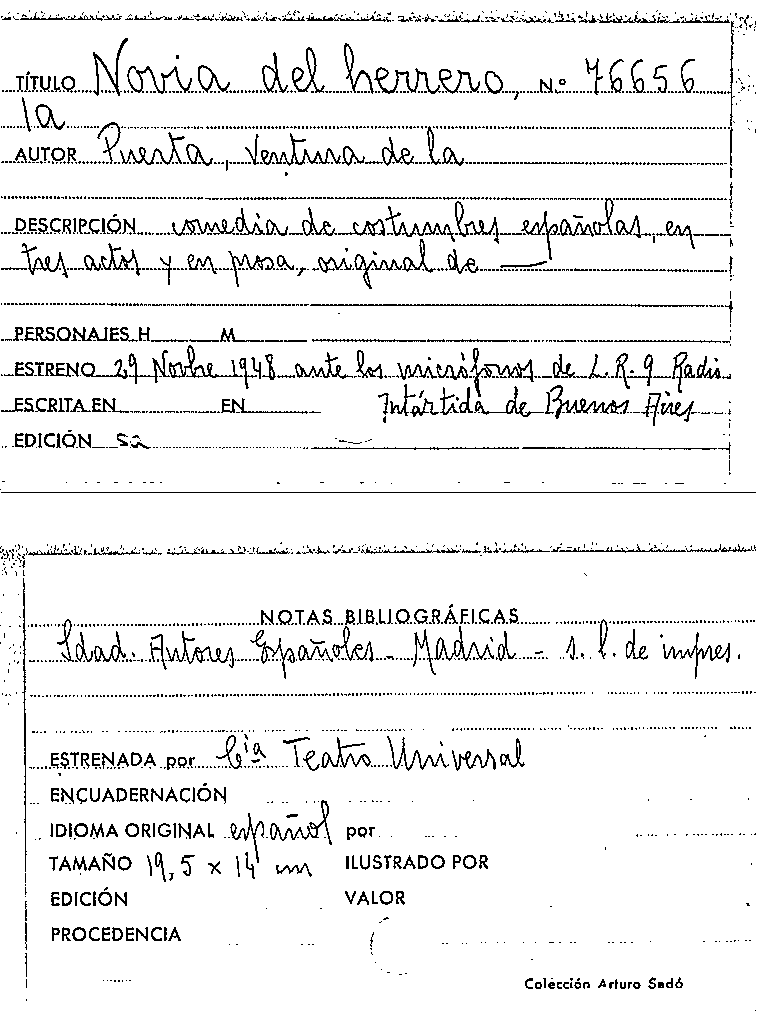 TÍTULO Novia del herrero, Nº 76656
la
AUTOR Puerta, Ventura de la
DESCRIPCIÓN comedia de costumbres españolas, en
tres actos y en prosa, original de —
PERSONAJES H M
ESTRENO 29 Novbre 1948 ante los micrófonos de L.R.9 Radio
ESCRITA EN EN Antártida de Buenos Aires
EDICIÓN
NOTAS BIBLIOGRÁFICAS
Sdad. Autores Españoles - Madrid - s. l. de impres.
ESTRENADA por Cía Teatro Universal
ENCUADERNACIÓN
IDIOMA ORIGINAL español por
TAMAÑO 19,5 x 14 cm ILUSTRADO POR
EDICIÓN VALOR
PROCEDENCIA
Colección Arturo Sedó